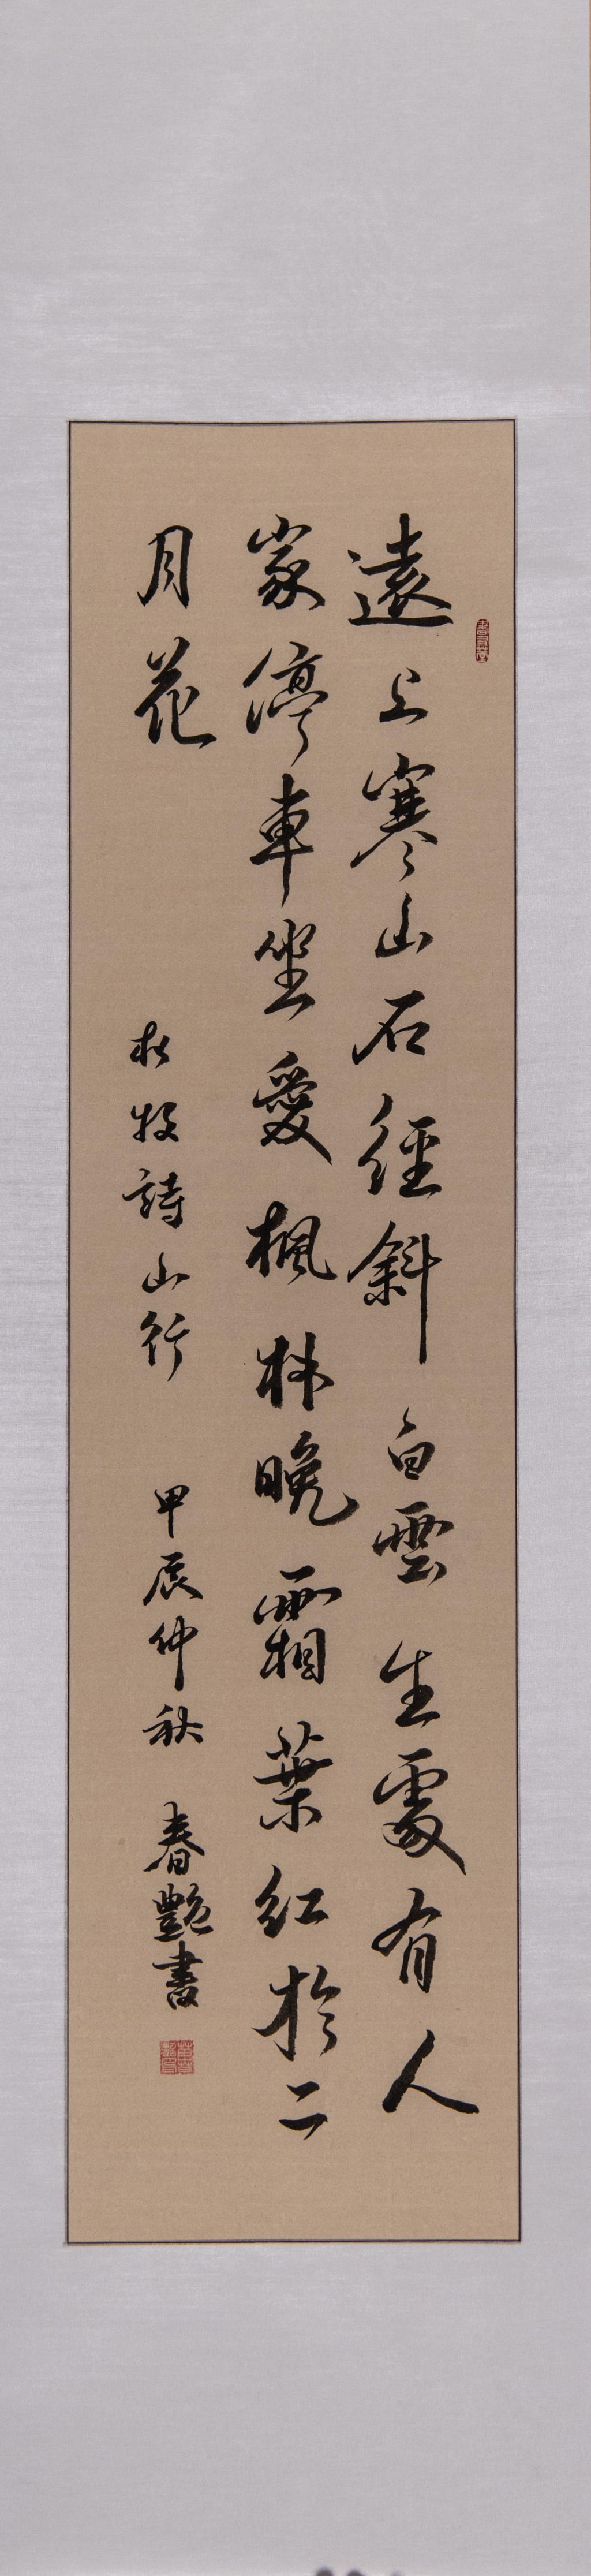 遠上寒山石徑斜白雲生處有人
家停車坐愛楓林晚霜葉紅於二
月花
杜牧詩山行 甲辰仲秋 春艷書